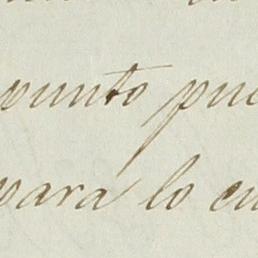 punto pue
para lo cu